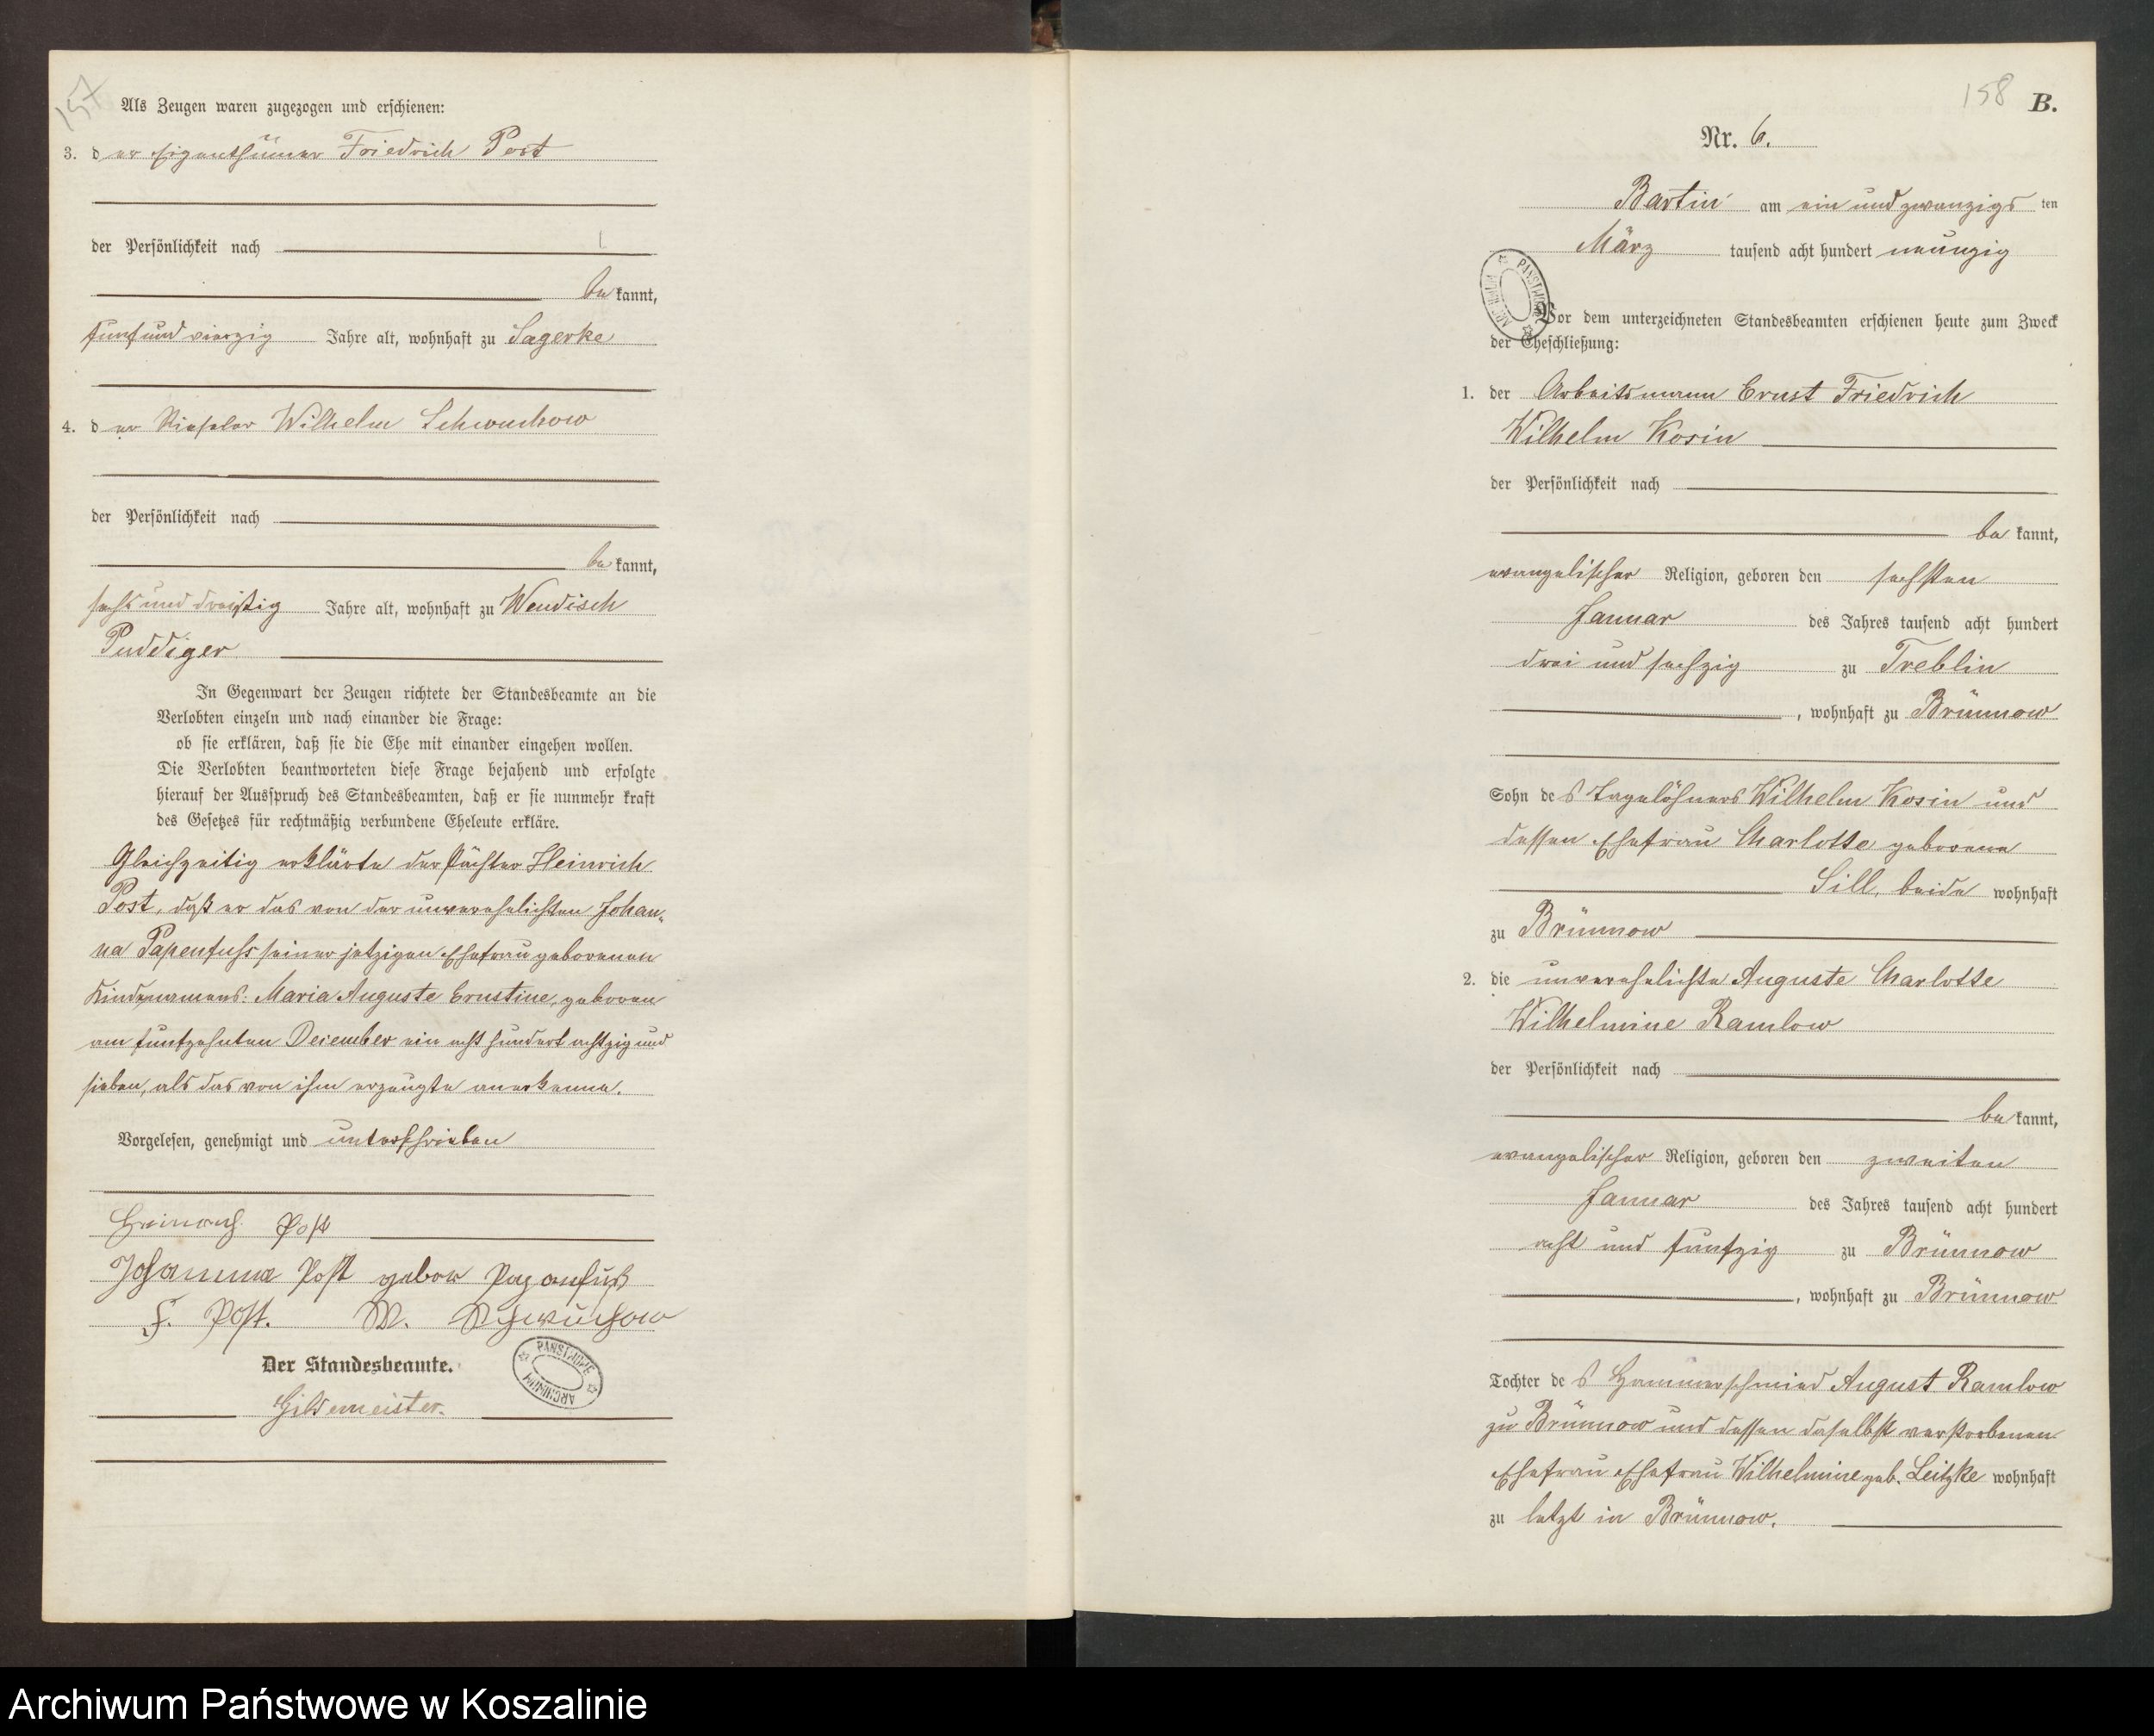 157
Als Zeugen waren zugezogen und erschienen:
3. der Eigenthümer Friedrich Post
der Persönlichkeit nach
bekannt,
fünfundvierzig Jahre alt, wohnhaft zu Sagerke
4. der Rieseler Wilhelm Schwuchow
der Persönlichkeit nach
bekannt,
sechsunddreißig Jahre alt, wohnhaft zu Wendisch
Puddiger
In Gegenwart der Zeugen richtete der Standesbeamte an die
Verlobten einzeln und nach einander die Frage:
ob sie erklären, daß sie die Ehe mit einander eingehen wollen.
Die Verlobten beantworteten diese Frage bejahend und erfolgte
hierauf der Ausspruch des Standesbeamten, daß er sie nunmehr kraft
des Gesetzes für rechtmäßig verbundene Eheleute erkläre.
Gleichzeitig erklärte der Pächter Heinrich
Post, daß er das von der unverehelichten Johan-
na Papenfuss seiner jetzigen Ehefrau geborenen
Kindes namens: Maria Auguste Ernstine, geboren
am fünfzehnten December ein acht hundert achtzig und
sieben, als das von ihm erzeugte anerkenne.
Vorgelesen, genehmigt und unterschrieben
Heinrich Post
Johanna Post gebor Papenfuß
F. Post. W. Schwuchow
Der Standesbeamte.
PAŃSTWOWE ARCHIWUM
Gildemeister.
158 B.
Nr. 6.
Bartin am ein und zwanzigs ten
März tausend acht hundert neunzig
PAŃSTWOWE ARCHIWUM
Vor dem unterzeichneten Standesbeamten erschienen heute zum Zweck
der Eheschließung:
1. der Arbeitsmann Ernst Friedrich
Wilhelm Kosin
der Persönlichkeit nach
bekannt,
evangelischer Religion, geboren den sechsten
Januar des Jahres tausend acht hundert
drei und sechzig zu Treblin
, wohnhaft zu Brünnow
Sohn des Tagelöhners Wilhelm Kosin und
dessen Ehefrau Charlotte geborene
Sill, beide wohnhaft
zu Brünnow
2. die unverehelichte Auguste Charlotte
Wilhelmine Ramlow
der Persönlichkeit nach
bekannt,
evangelischer Religion, geboren den zweiten
Januar des Jahres tausend acht hundert
acht und fünfzig zu Brünnow
, wohnhaft zu Brünnow
Tochter des Hammerschmied August Ramlow
zu Brünnow und dessen daselbst verstorbenen
Ehefrau Ehefrau Wilhelmine geb. Leitzke wohnhaft
zu letzt in Brünnow.
Archiwum Państwowe w Koszalinie